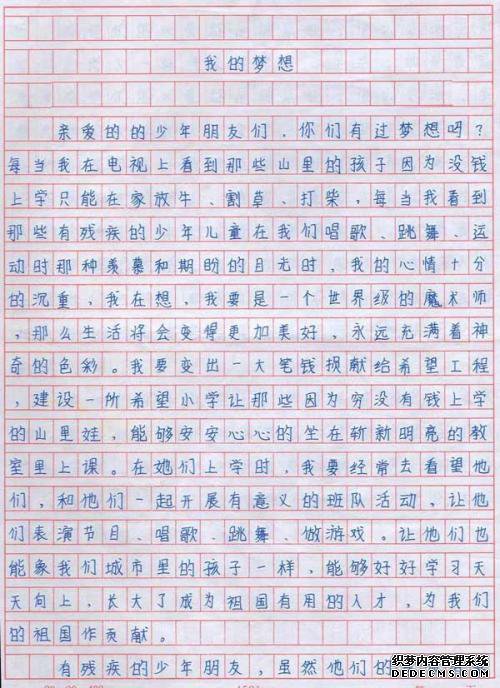 我的梦想
亲爱的的少年朋友们，你们有过梦想吗？
每当我在电视上看到那些山里的孩子因为没钱
上学只能在家放牛、割草、打柴，每当我看到
那些有残疾的少年儿童在我们唱歌、跳舞、运
动时那种羡慕和期盼的目光时，我的心情十分
的沉重，我在想，我要是一个世界级的魔术师
，那么生活将会变得更加美好，永远充满着神
奇的色彩。我要变出一大笔钱损献给希望工程
，建设一所希望小学让那些因为穷没有钱上学
的山里娃，能够安安心心的坐在斩新明亮的教
室里上课。在她们上学时，我要经常去看望他
们，和他们一起开展有意义的班队活动，让他
们表演节目、唱歌、跳舞、做游戏。让他们也
能象我们城市里的孩子一样，能够好好学习天
天向上，长大了成为祖国有用的人才，为我们
的祖国作贡献。
有残疾的少年朋友，虽然他们的
织梦内容管理系统
DEDECMS.COM